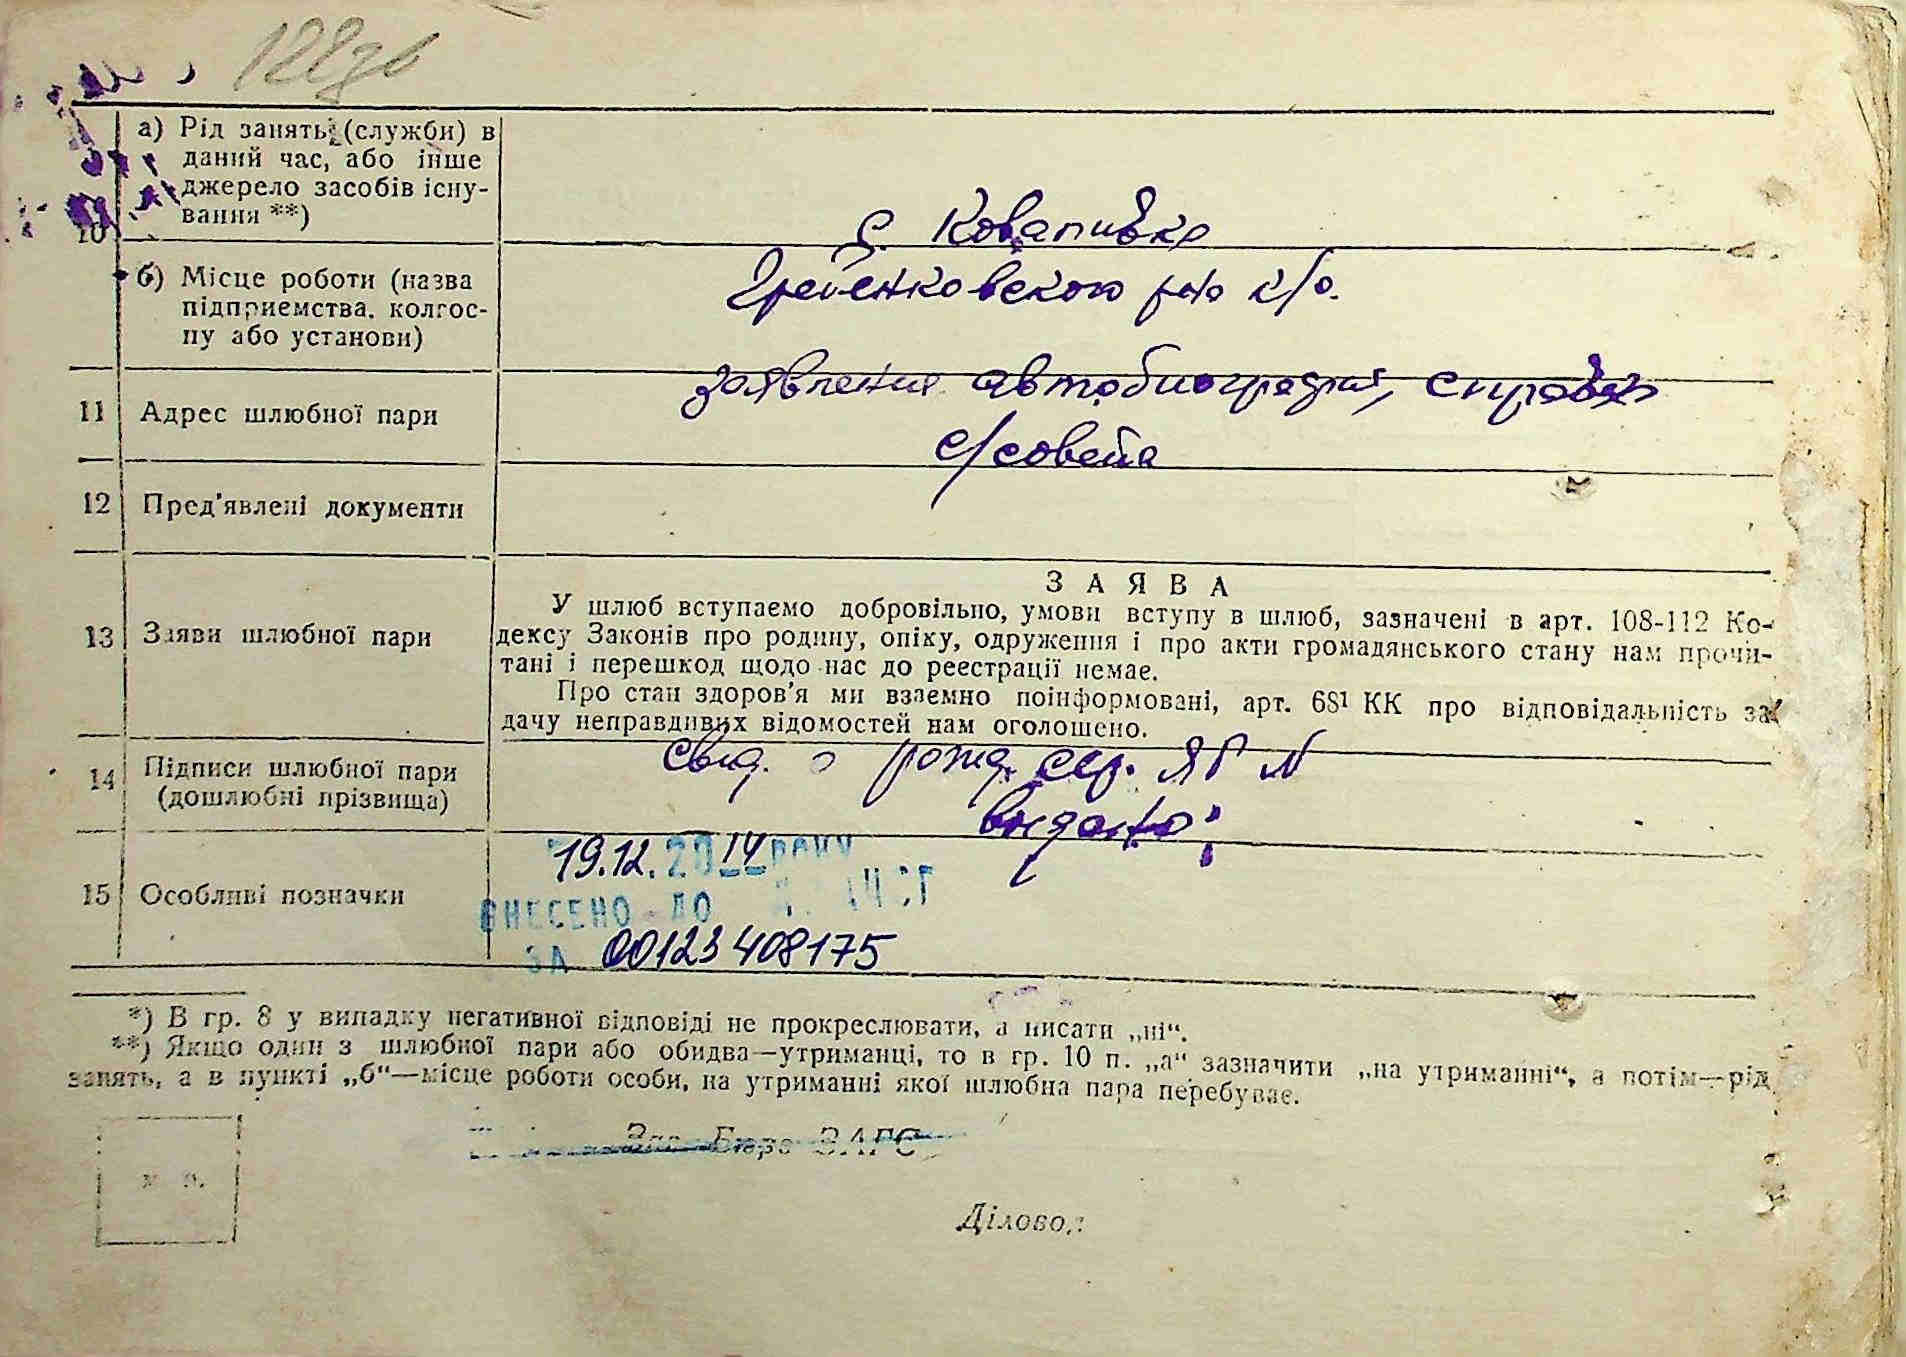 а) Рід занять (служби) в
даний час, або інше
джерело засобів існу-
вання **)
10
с. Коваливка
б) Місце роботи (назва
підприємства, колгос-
пу або установи)
Гребенковского р-на к/о.
заявление автобиография, справка
11 Адрес шлюбної пари
с/совета
12 Пред'явлені документи
ЗАЯВА
13 Заяви шлюбної пари
У шлюб вступаємо добровільно, умови вступу в шлюб, зазначені в арт. 108-112 Ко-
дексу Законів про родину, опіку, одруження і про акти громадянського стану нам прочи-
тані і перешкод щодо нас до реєстрації немає.
Про стан здоров'я ми взаємно поінформовані, арт. 68¹ КК про відповідальність за
дачу неправдивих відомостей нам оголошено.
свид. о рожд. сер. ЯР N
14 Підписи шлюбної пари
(дошлюбні прізвища)
выдано:
19.12.2014 РОКУ
15 Особливі позначки
ВНЕСЕНО ДО
ЗА 00123408175
*) В гр. 8 у випадку негативної відповіді не прокреслювати, а писати „ні“.
**) Якщо один з шлюбної пари або обидва—утриманці, то в гр. 10 п. „а“ зазначити „на утриманні“, а потім—рід
занять, а в пункті „б“—місце роботи особи, на утриманні якої шлюбна пара перебуває.
Зав. Бюро ЗАГС
м. п.
Діловод